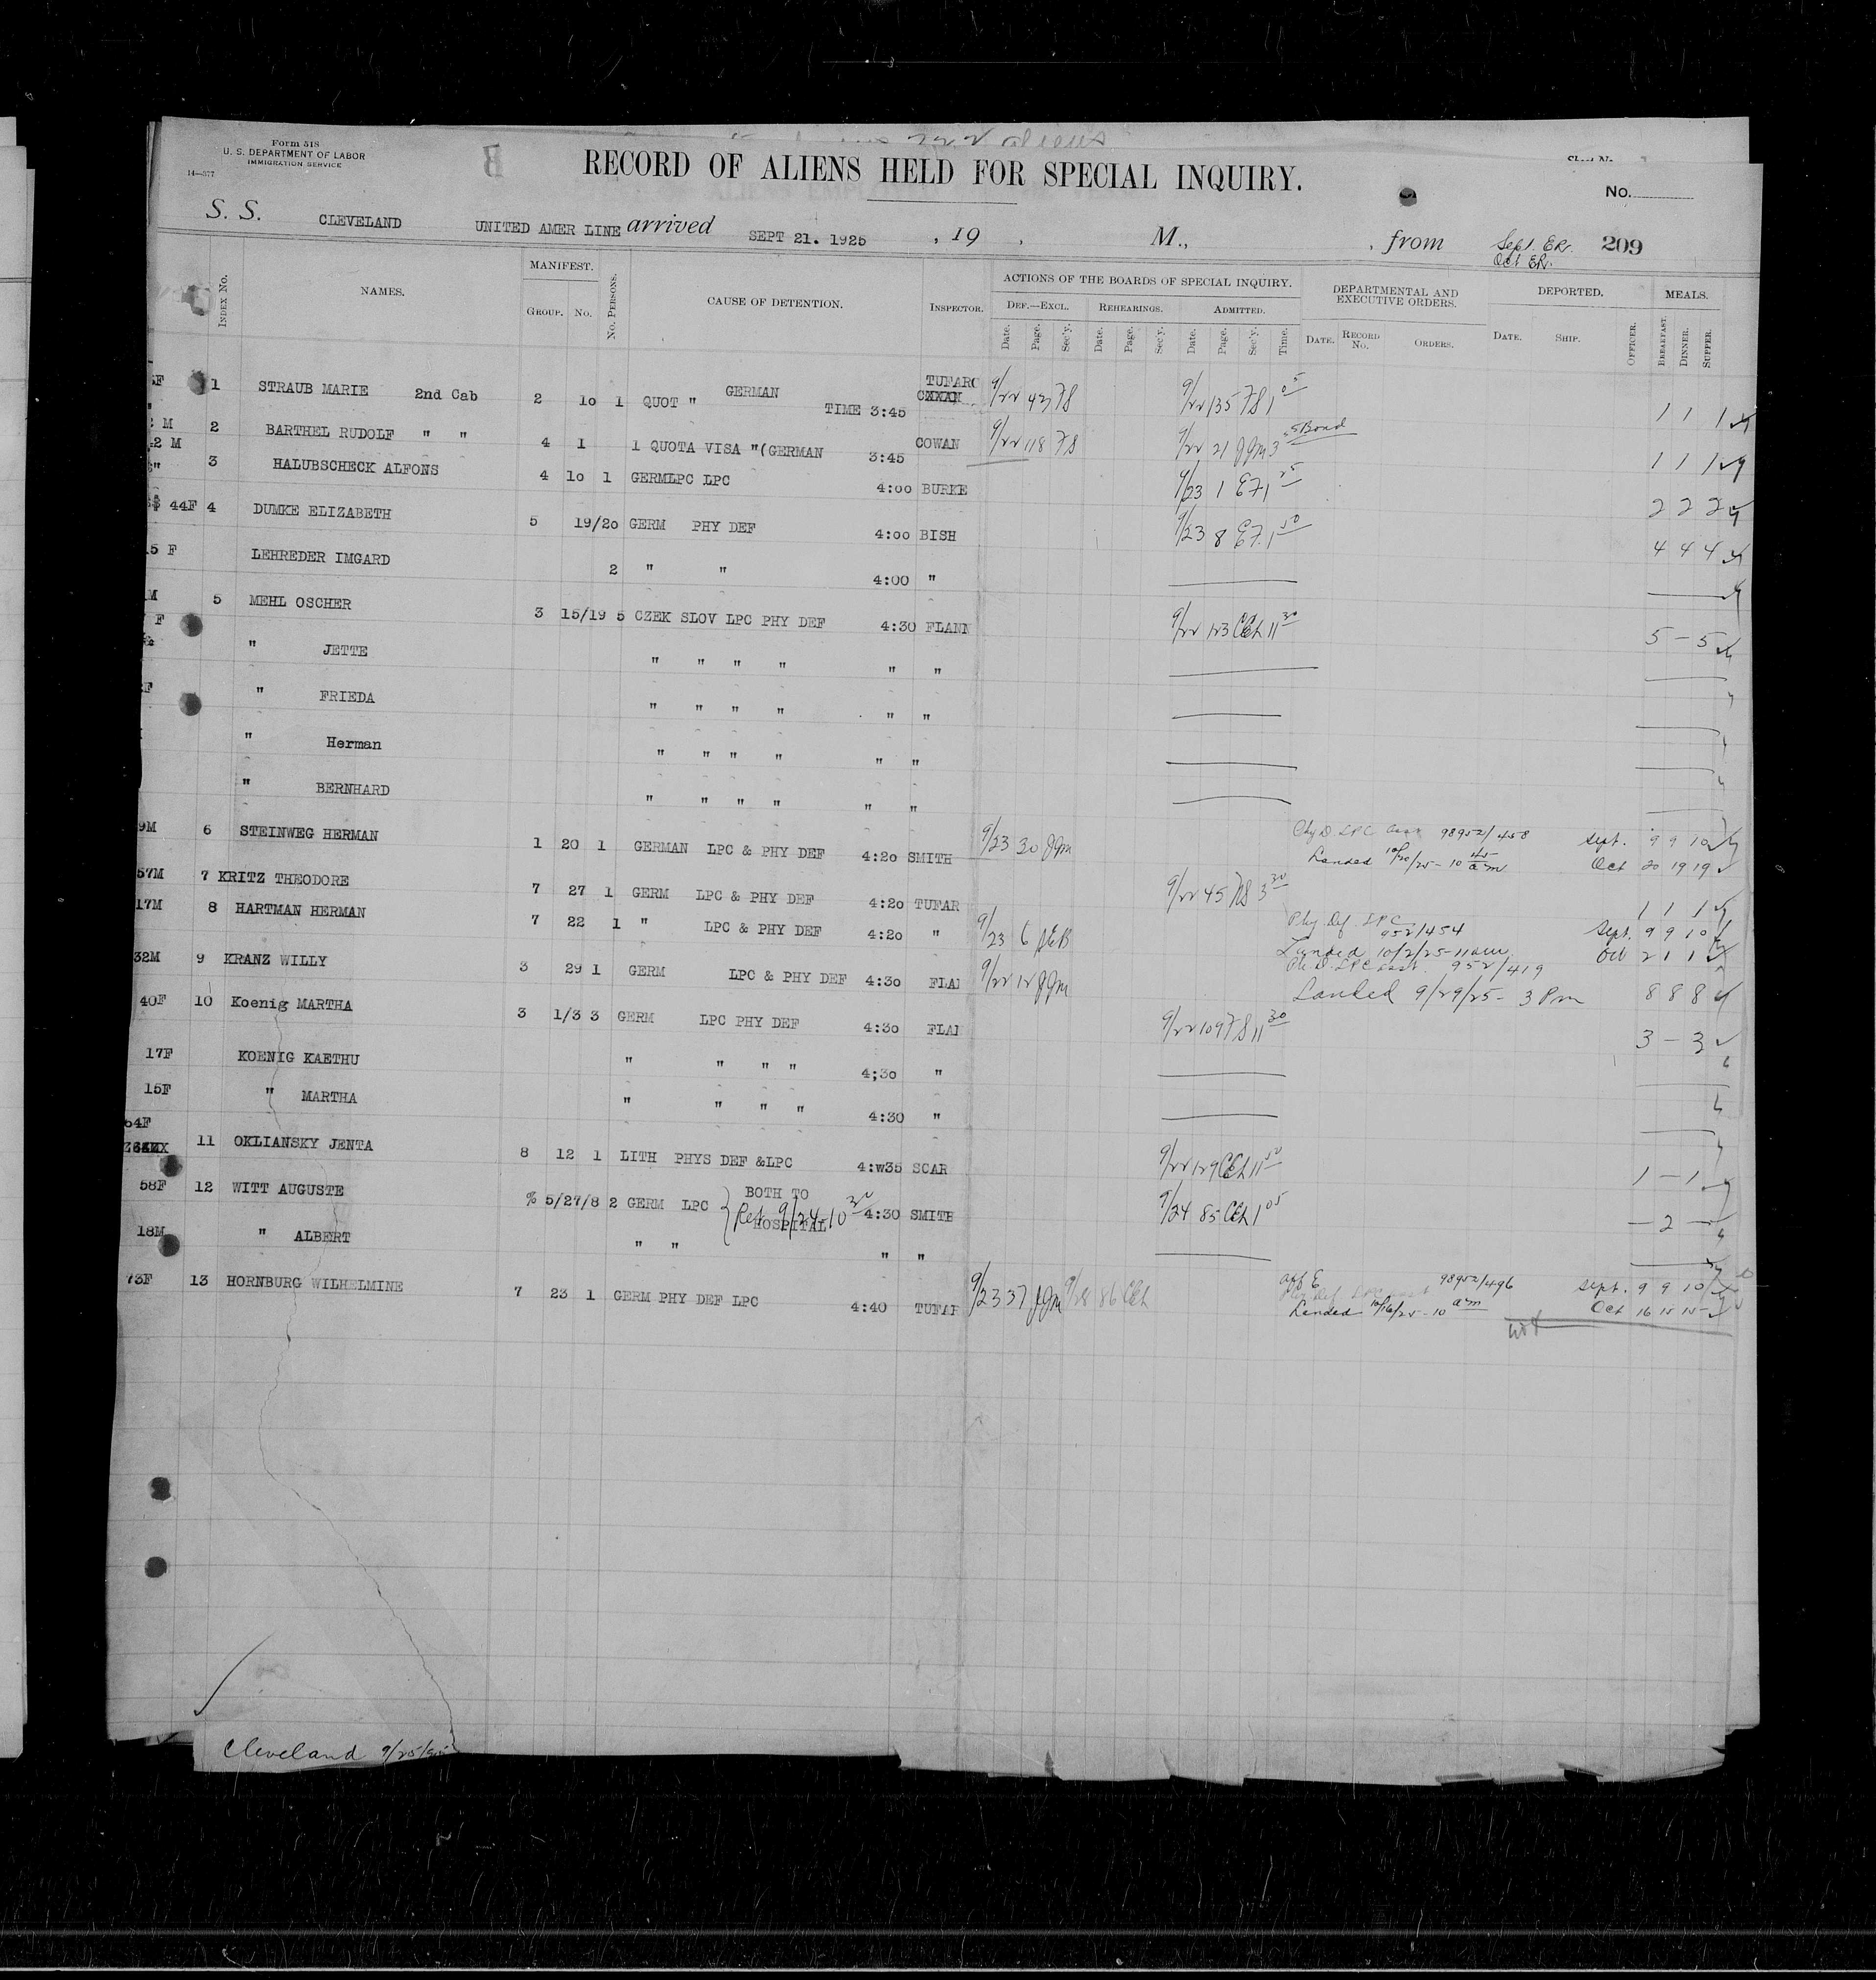 Form 518
U. S. DEPARTMENT OF LABOR
IMMIGRATION SERVICE
14—577
RECORD OF ALIENS HELD FOR SPECIAL INQUIRY.
No.
S. S. CLEVELAND UNITED AMER LINE arrived SEPT 21. 1925 , 19 , M., , from Sept. ER. 209
Oct ER.
INDEX No. NAMES. MANIFEST. No. PERSONS. CAUSE OF DETENTION. INSPECTOR. ACTIONS OF THE BOARDS OF SPECIAL INQUIRY. DEPARTMENTAL AND EXECUTIVE ORDERS. DEPORTED. MEALS.
GROUP. No. DEF.—EXCL. REHEARINGS. ADMITTED.
Date. Page. Sec'y. Date. Page. Sec'y. Date. Page. Sec'y. Time. DATE. RECORD No. ORDERS. DATE. SHIP. OFFICER. BREAKFAST. DINNER. SUPPER.
1 STRAUB MARIE 2nd Cab 2 1o 1 QUOT " GERMAN TIME 3:45 TUFARO 9/22 43 9/22 135 1 05 1 1 1
2 BARTHEL RUDOLF " " 4 1 1 QUOTA VISA "(GERMAN 3:45 COWAN 9/22 118 9/22 21 JGM 3 Bond 1 1 1
42 M 3 HALUBSCHECK ALFONS 4 1o 1 GERMLPC LPC 4:oo BURKE 9/23 1 2 2 2
44F 4 DUMKE ELIZABETH 5 19/2o GERM PHY DEF 4:oo BISH 9/23 8 1 50 4 4 4
15 F LEHREDER IMGARD 2 " " 4:00 "
M 5 MEHL OSCHER 3 15/19 5 CZEK SLOV LPC PHY DEF 4:30 FLANN 9/22 123 11 30 5 – 5
F " JETTE " " " " " "
F " FRIEDA " " " " " "
" Herman " " " " " "
" BERNHARD " " " " " "
9M 6 STEINWEG HERMAN 1 20 1 GERMAN LPC & PHY DEF 4:2o SMITH 9/23 30 JGM 98952/458 Sept. 9 9 10
Landed 10/20/25 - 10 45 am Oct 20 19 19
57M 7 KRITZ THEODORE 7 27 1 GERM LPC & PHY DEF 4:2o TUFAR 9/22 45 3 30 1 1 1
17M 8 HARTMAN HERMAN 7 22 1 " LPC & PHY DEF 4:2o " 9/23 6 Phy Def LPC 952/454 Sept. 9 9 10
Landed 10/2/25 - 11 am Oct 2 1 1
32M 9 KRANZ WILLY 3 29 1 GERM LPC & PHY DEF 4:3o FLAN 9/22 12 JGM 952/419
Landed 9/29/25 - 3 Pm 8 8 8
40F 10 Koenig MARTHA 3 1/3 3 GERM LPC PHY DEF 4:3o FLAN 9/22 109 11 30 3 – 3
17F KOENIG KAETHU " " " " 4;3o "
15F " MARTHA " " " " 4:30 "
64F
11 OKLIANSKY JENTA 8 12 1 LITH PHYS DEF &LPC 4:w35 SCAR 9/22 129 11 1 – 1
58F 12 WITT AUGUSTE % 5/27/8 2 GERM LPC BOTH TO HOSPITAL Ret 9/24 10 30 4:30 SMITH 9/24 85 1 05 – 2 –
18M " ALBERT " " " "
73F 13 HORNBURG WILHELMINE 7 23 1 GERM PHY DEF LPC 4:40 TUFAR 9/23 37 JGM 9/28 86 98952/496 Sept. 9 9 10
Landed 10/16/25 - 10 am Oct 16 15 15
Cleveland 9/25/25